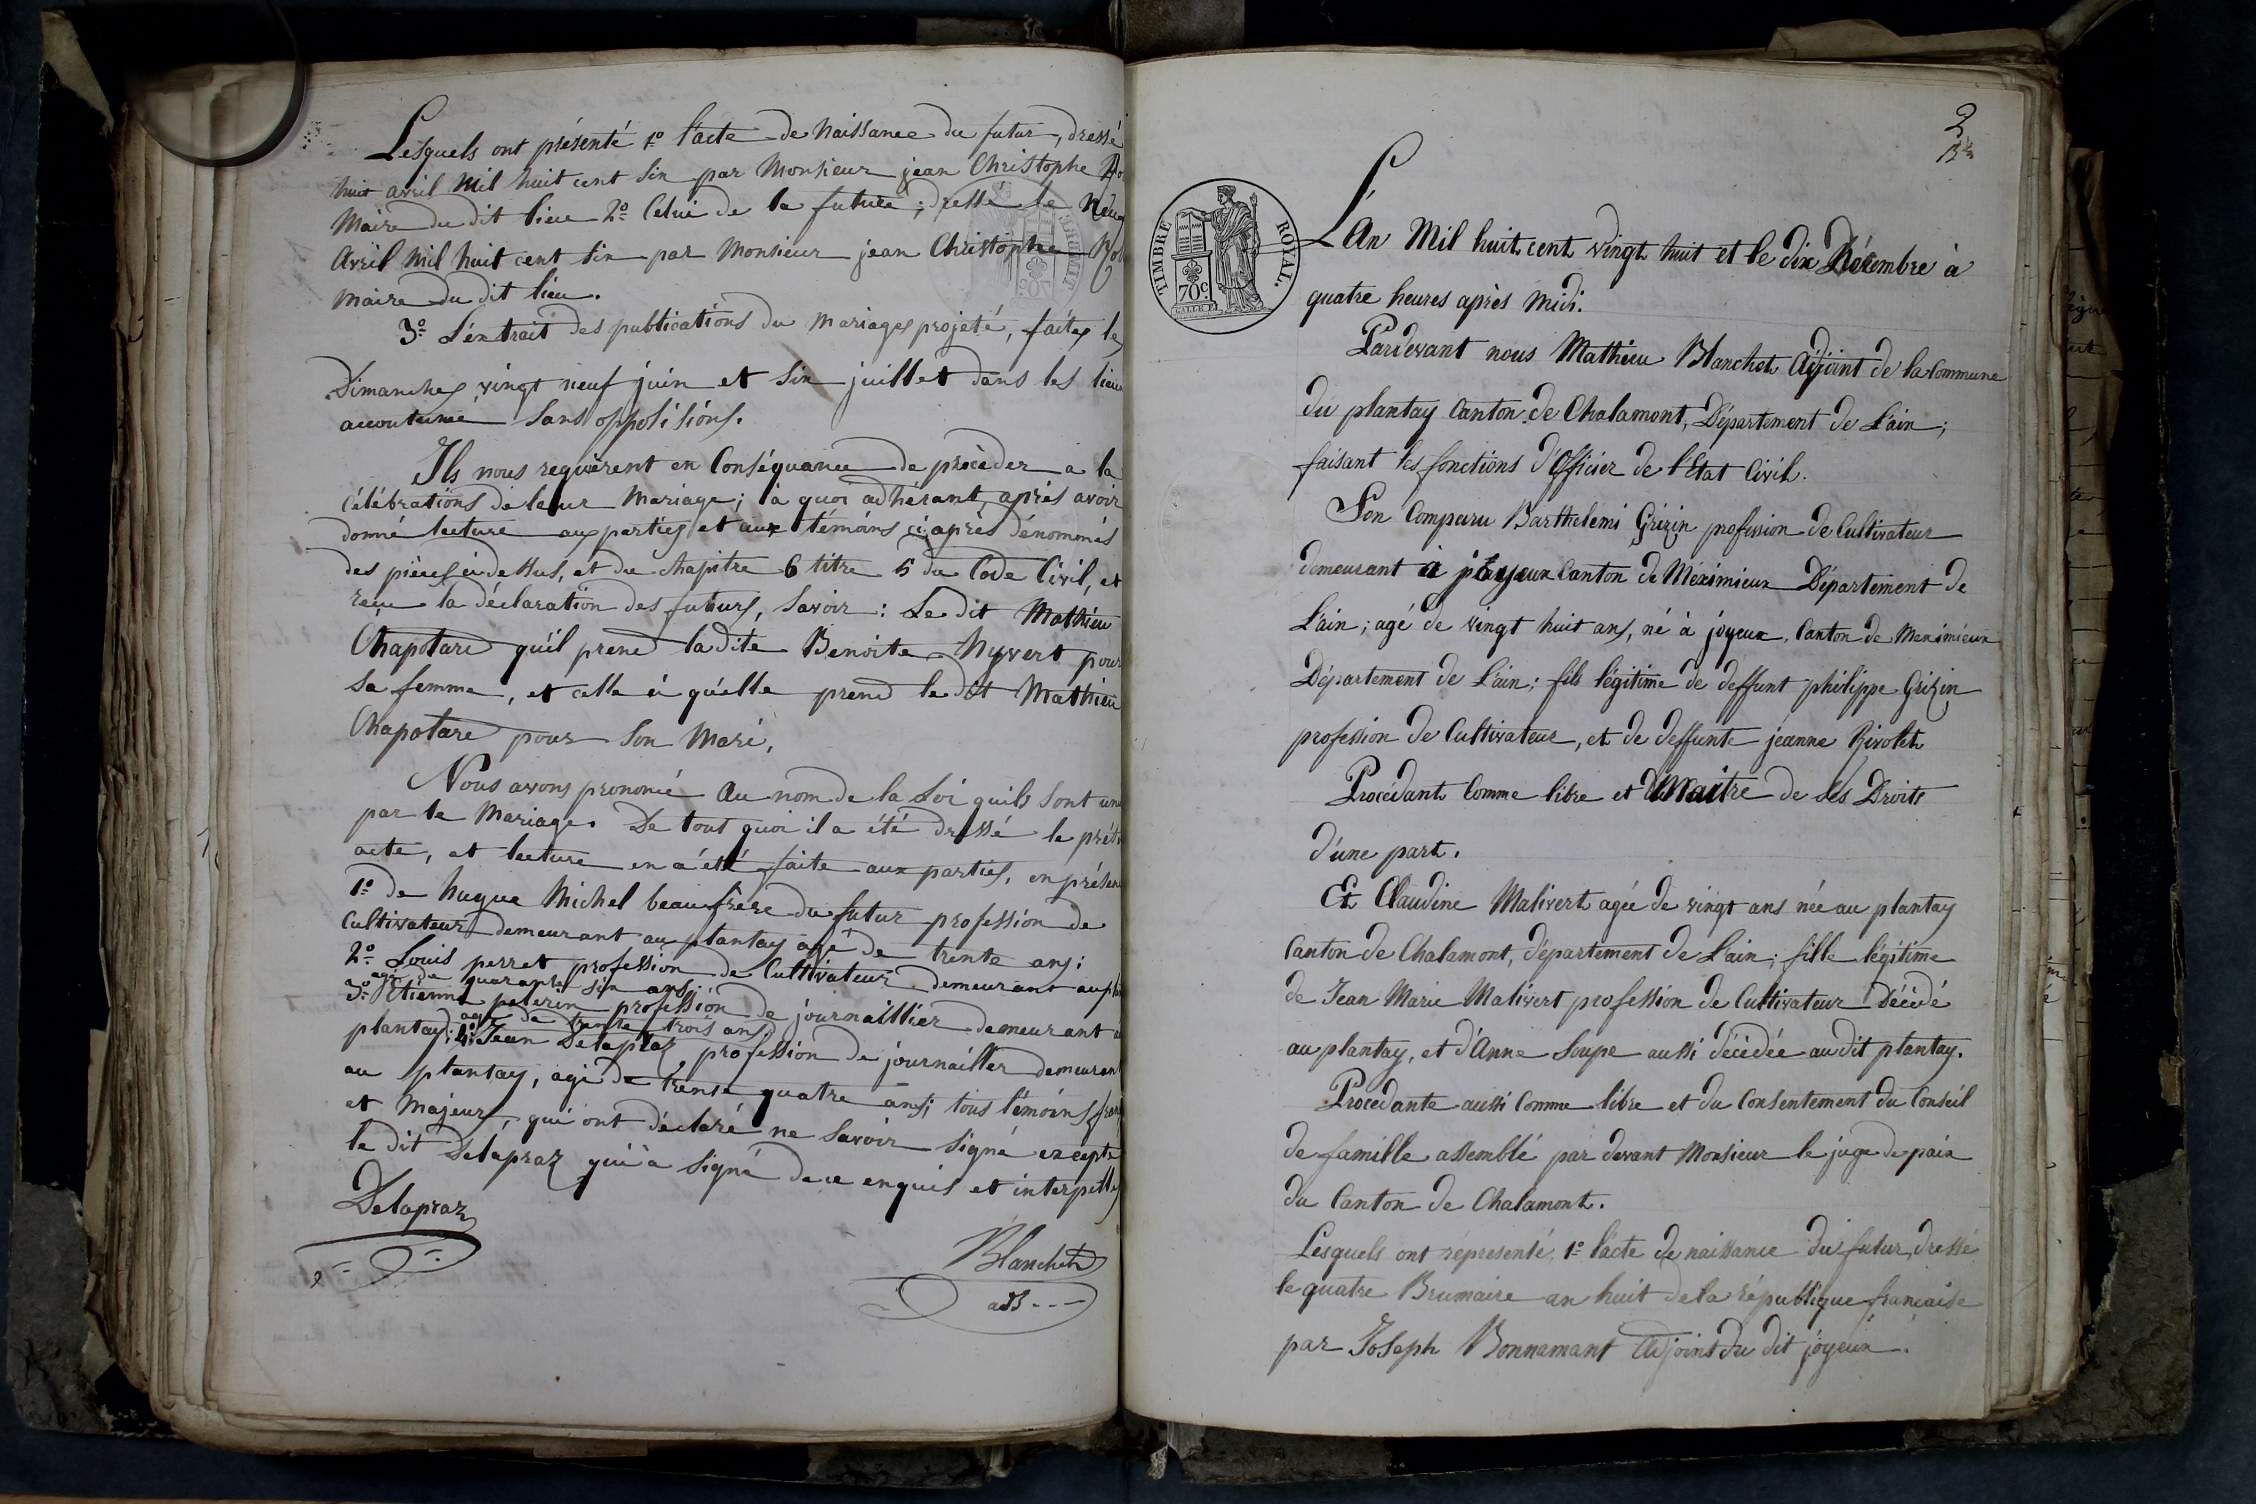 Lesquels ont présenté 1º l'acte de Naissance du futur, dressé
huit avril Mil huit cent six par Monsieur jean Christophe
Maire du dit lieu 2º Celui de la future ; dressé le
Avril Mil huit cent six par Monsieur jean Christophe
maire du dit lieu.
3º L'extrait des publications du mariages projeté, faites les
Dimanches vingt neuf juin et six juillet dans les lieux
accoutumé sans oppolisions.
Ils nous requièrent en Conséquance de procèder a la
Célébrations de leur Mariage ; à quoi adhérant, après avoir
donné lecture aux parties et aux témoins ci après dénommés
des pièces ci dessus, et du chapitre 6 titre 5 du Code Civil, et
reçu la déclaration des futurs, savoir : Le dit Mathieu
Chapotard qu'il prend la dite Benoite Nyvert pour
sa femme, et celle ci qu'elle prend le dit Mathieu
Chapotard pour son Mari,
Nous avons prononcé au nom de la Loi qu'ils sont
par le Mariage. De tout quoi il a été dressé le
acte, et lecture en a été faite aux parties, en
1º de hugue Michel beaufrère du futur profession de
Cultivateur demeurant au plantay agé de trente ans ;
2º Louis perret profession de Cultivateur demeurant au
agé de quarante six ans
3º Etienne pelerin profession de journaillier demeurant
agé de trente trois ans
plantay ; 4º Jean Delapraz, profession de journailler demeurant
au plantay, agé de trente quatre ans ; tous témoins
et Majeurs, qui ont déclaré ne Savoir signé excepté
le dit Delapraz qui à signé de ce enquis et interpellés
Delapraz
Blanchet
adj
2
TIMBRE ROYAL.
70 c.
L'An Mil huit cent vingt huit et le dix Décembre à
quatre heures après Midi.
Pardevant nous Mathieu Blanchet Adjoint de la Commune
du plantay Canton de Chalamont, Département de L'ain ;
faisant les fonctions d'Officier de l'Etat Civil.
Son Comparu Barthelemi Grizin profession de Cultivateur
demeurant à joyeux Canton de Méximieux Département de
L'ain ; agé de vingt huit ans, né à joyeux, Canton de Meximieux
Département de L'ain ; fils légitime de deffunt philippe Grizin
profession de Cultivateur, et de deffunte jéanne Rivolet
Procédant Comme libre et Maitre de ses Droits
d'une part.
Et Claudine Malivert agée de vingt ans née au plantay
Canton de Chalamont, département de L'ain ; fille légitime
de Jean Marie Malivert profession de Cultivateur Décédé
au plantay, et d'Anne Soupe aussi décédée au dit plantay.
Procédante aussi Comme libre et du Consentement du Conseil
de famille assemblé par devant Monsieur le juge de paix
du Canton de Chalamont.
Lesquels ont réprésenté 1º l'acte de naissance du futur, dressé
le quatre Brumaire an huit de la république française
par Joseph Bonnamant Adjoint du dit joyeux.